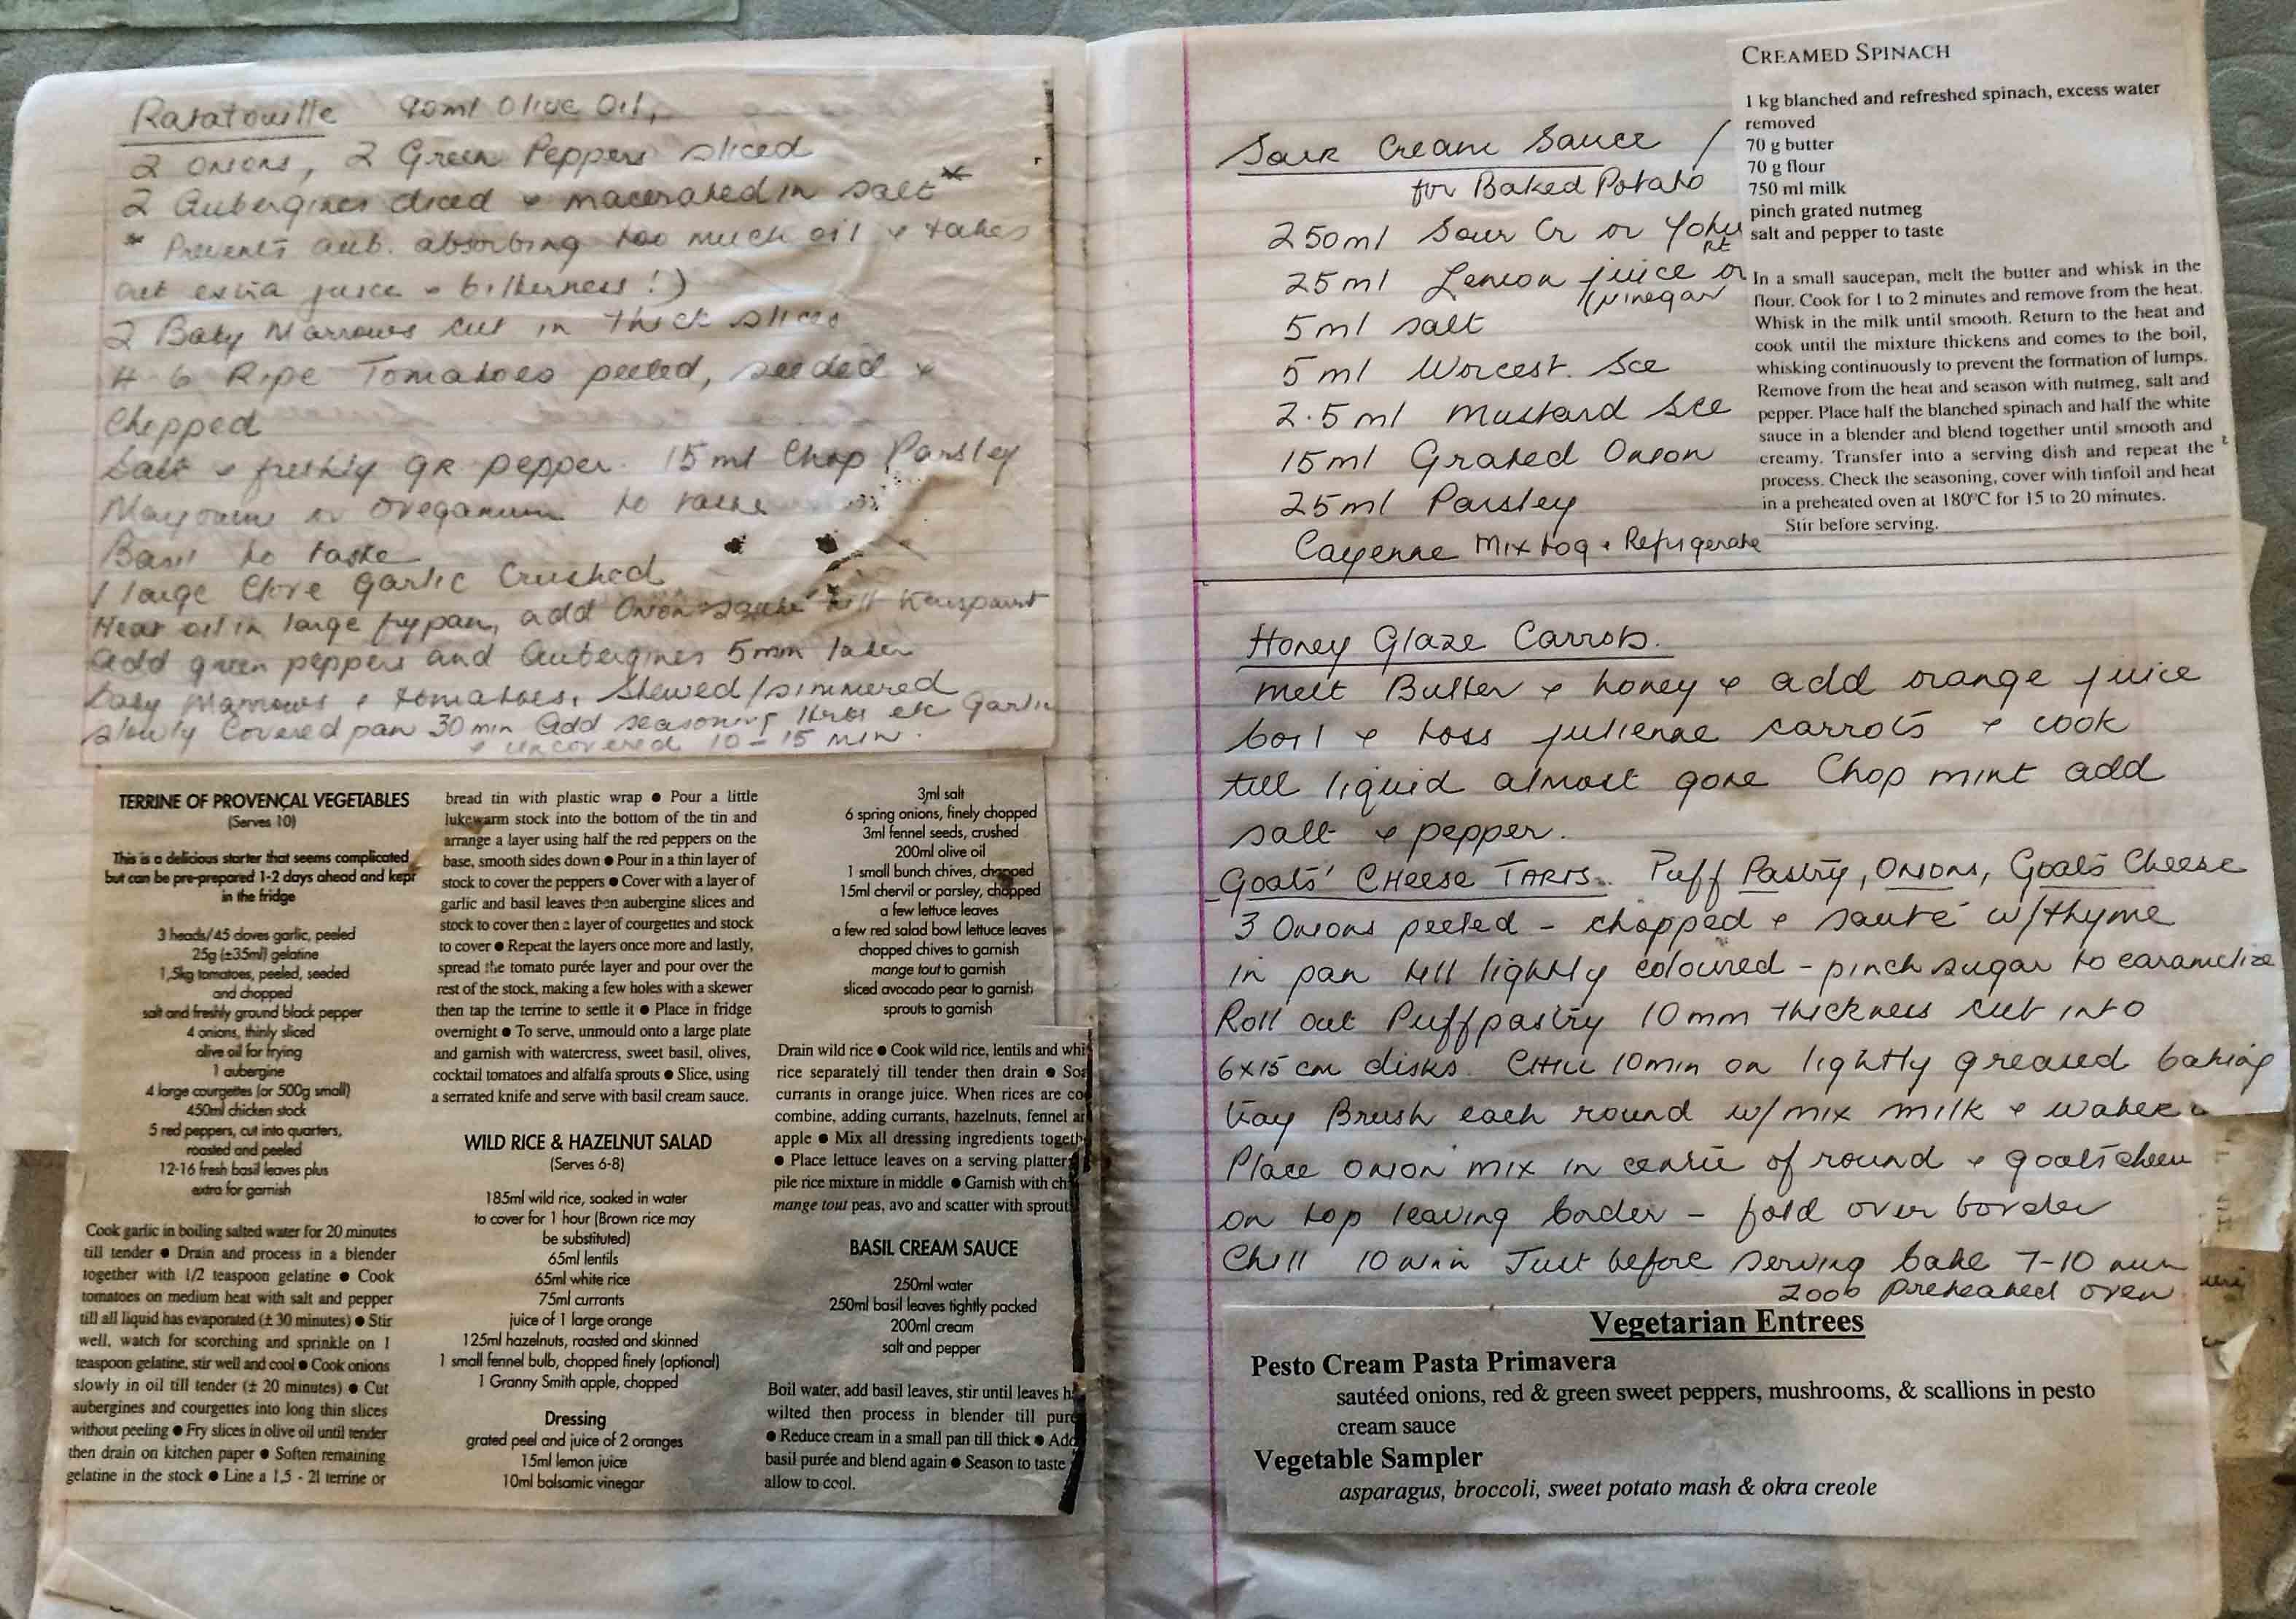 Ratatouille 90ml Olive Oil,
2 onions, 2 Green Peppers sliced
2 Aubergines diced & macerated in salt*
* Prevents aub. absorbing too much oil & takes
out extra juice & bitterness!)
2 Baby Marrows cut in thick slices
4-6 Ripe Tomatoes peeled, seeded &
Chopped
Salt & freshly gr pepper. 15ml Chop Parsley
Marjoram or Oreganum to taste
Basil to taste
1 large Clove Garlic Crushed
Heat oil in large frypan, add Onion sauté till transparent
Add green peppers and Aubergines 5min later
Baby Marrows & tomatoes. Stewed/simmered
slowly Covered pan 30 min Add seasoning Herbs etc Garlic
& uncovered 10-15 min.
TERRINE OF PROVENÇAL VEGETABLES
(Serves 10)
This is a delicious starter that seems complicated
but can be pre-prepared 1-2 days ahead and kept
in the fridge
3 heads/45 cloves garlic, peeled
25g (±35ml) gelatine
1,5kg tomatoes, peeled, seeded
and chopped
salt and freshly ground black pepper
4 onions, thinly sliced
olive oil for frying
1 aubergine
4 large courgettes (or 500g small)
450ml chicken stock
5 red peppers, cut into quarters,
roasted and peeled
12-16 fresh basil leaves plus
extra for garnish
Cook garlic in boiling salted water for 20 minutes
till tender ● Drain and process in a blender
together with 1/2 teaspoon gelatine ● Cook
tomatoes on medium heat with salt and pepper
till all liquid has evaporated (± 30 minutes) ● Stir
well, watch for scorching and sprinkle on 1
teaspoon gelatine, stir well and cool ● Cook onions
slowly in oil till tender (± 20 minutes) ● Cut
aubergines and courgettes into long thin slices
without peeling ● Fry slices in olive oil until tender
then drain on kitchen paper ● Soften remaining
gelatine in the stock ● Line a 1,5 - 2l terrine or
bread tin with plastic wrap ● Pour a little
lukewarm stock into the bottom of the tin and
arrange a layer using half the red peppers on the
base, smooth sides down ● Pour in a thin layer of
stock to cover the peppers ● Cover with a layer of
garlic and basil leaves then aubergine slices and
stock to cover then a layer of courgettes and stock
to cover ● Repeat the layers once more and lastly,
spread the tomato purée layer and pour over the
rest of the stock, making a few holes with a skewer
then tap the terrine to settle it ● Place in fridge
overnight ● To serve, unmould onto a large plate
and garnish with watercress, sweet basil, olives,
cocktail tomatoes and alfalfa sprouts ● Slice, using
a serrated knife and serve with basil cream sauce.
WILD RICE & HAZELNUT SALAD
(Serves 6-8)
185ml wild rice, soaked in water
to cover for 1 hour (Brown rice may
be substituted)
65ml lentils
65ml white rice
75ml currants
juice of 1 large orange
125ml hazelnuts, roasted and skinned
1 small fennel bulb, chopped finely (optional)
1 Granny Smith apple, chopped
Dressing
grated peel and juice of 2 oranges
15ml lemon juice
10ml balsamic vinegar
3ml salt
6 spring onions, finely chopped
3ml fennel seeds, crushed
200ml olive oil
1 small bunch chives, chopped
15ml chervil or parsley, chopped
a few lettuce leaves
a few red salad bowl lettuce leaves
chopped chives to garnish
mange tout to garnish
sliced avocado pear to garnish
sprouts to garnish
Drain wild rice ● Cook wild rice, lentils and whi
rice separately till tender then drain ● Soa
currants in orange juice. When rices are co
combine, adding currants, hazelnuts, fennel an
apple ● Mix all dressing ingredients togeth
● Place lettuce leaves on a serving platter
pile rice mixture in middle ● Garnish with ch
mange tout peas, avo and scatter with sprout
BASIL CREAM SAUCE
250ml water
250ml basil leaves tightly packed
200ml cream
salt and pepper
Boil water, add basil leaves, stir until leaves ha
wilted then process in blender till pure
● Reduce cream in a small pan till thick ● Add
basil purée and blend again ● Season to taste
allow to cool.
Sour Cream Sauce /
for Baked Potato
250ml Sour Cr or Yohurt
25ml Lemon juice or
(vinegar
5ml salt
5ml Worcest. Sce
2.5ml Mustard Sce
15ml Grated Onion
25ml Parsley
Cayenne Mix tog & Refrigerate
CREAMED SPINACH
1 kg blanched and refreshed spinach, excess water
removed
70 g butter
70 g flour
750 ml milk
pinch grated nutmeg
salt and pepper to taste
In a small saucepan, melt the butter and whisk in the
flour. Cook for 1 to 2 minutes and remove from the heat.
Whisk in the milk until smooth. Return to the heat and
cook until the mixture thickens and comes to the boil,
whisking continuously to prevent the formation of lumps.
Remove from the heat and season with nutmeg, salt and
pepper. Place half the blanched spinach and half the white
sauce in a blender and blend together until smooth and
creamy. Transfer into a serving dish and repeat the
process. Check the seasoning, cover with tinfoil and heat
in a preheated oven at 180°C for 15 to 20 minutes.
Stir before serving.
Honey Glaze Carrots.
melt Butter & honey & add orange juice
boil & toss julienne carrots & cook
till liquid almost gone Chop mint add
salt & pepper.
Goats' CHeese TARTS. Puff Pastry, Onions, Goats Cheese
3 Onions peeled - chopped & sauté w/thyme
in pan till lightly coloured - pinch sugar to caramelize
Roll out Puffpastry 10mm thickness cut into
6x15cm disks. CHill 10min on lightly greased baking
tray Brush each round w/mix milk & water
Place onion mix in centre of round & goats cheese
on top leaving border - fold over border
Chill 10 min Just before serving bake 7-10 min
200° Preheated oven
Vegetarian Entrees
Pesto Cream Pasta Primavera
sautéed onions, red & green sweet peppers, mushrooms, & scallions in pesto
cream sauce
Vegetable Sampler
asparagus, broccoli, sweet potato mash & okra creole